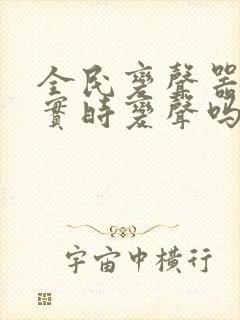 全民變聲器
實時變聲嗎
宇宙中橫行